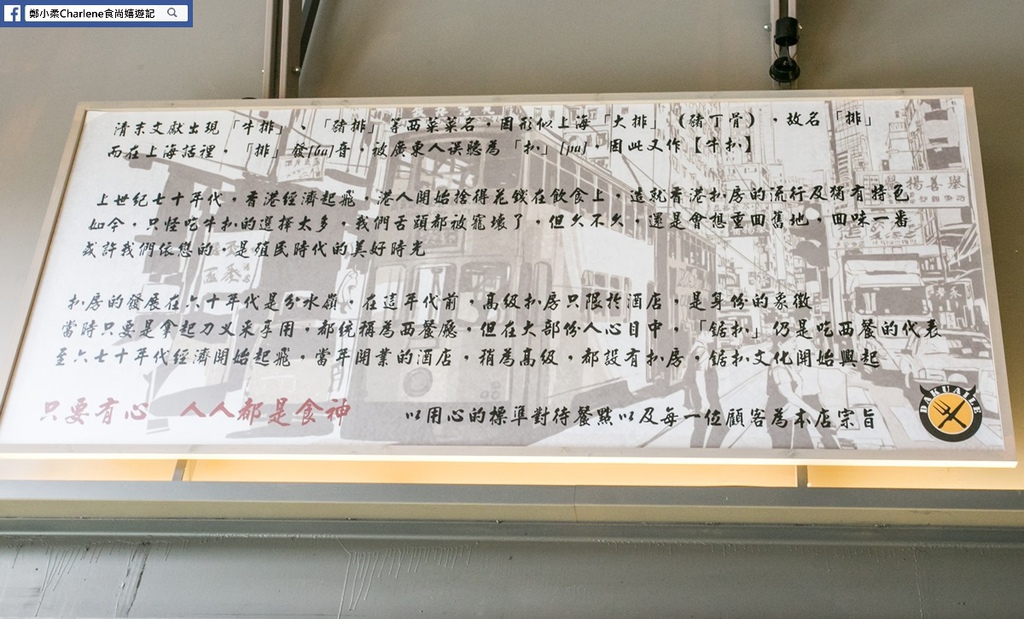 鄭小柔Charlene食尚嬉遊記
清末文獻出現「牛排」、「豬排」等西菜菜名，因形似上海「大排」（豬丁骨），故名「排」
而在上海話裡，「排」發[ba]音，被廣東人误聽為「扒」[pa]，因此又作【牛扒】
上世纪七十年代，香港經濟起飛，港人開始捨得花錢在飲食上，造就香港扒房的流行及稍有特色
如今，只怪吃牛扒的選擇太多，我們舌頭都被寵壞了，但久不久，還是會想重回舊地，回味一番
或許我們依戀的，是殖民時代的美好時光
扒房的發展在六十年代是分水嶺，在這年代前，高級扒房只限於酒店，是身份的象徵
當時只要是拿起刀叉来享用，都统稱為西餐廳，但在大部份人心目中，「鋸扒」仍是吃西餐的代表
至六七十年代經濟開始起飛，當年開業的酒店，稍為高級，都設有扒房，鋸扒文化開始興起
只要有心 人人都是食神
以用心的標準對待餐點以及每一位顧客為本店宗旨